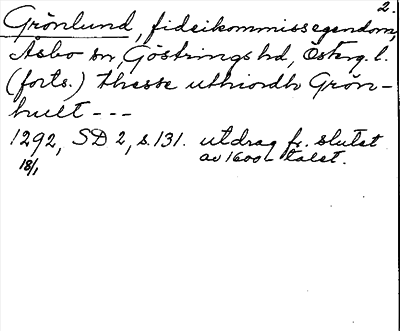 2.
Grönlund, fideikommissegendom,
Åsbo sn, Göstrings hd, Österg. l.
(forts.) thesse uthiordh Grön-
hult ---
1292, SD 2, s. 131. utdrag fr. slutet
18/1 av 1600-talet.